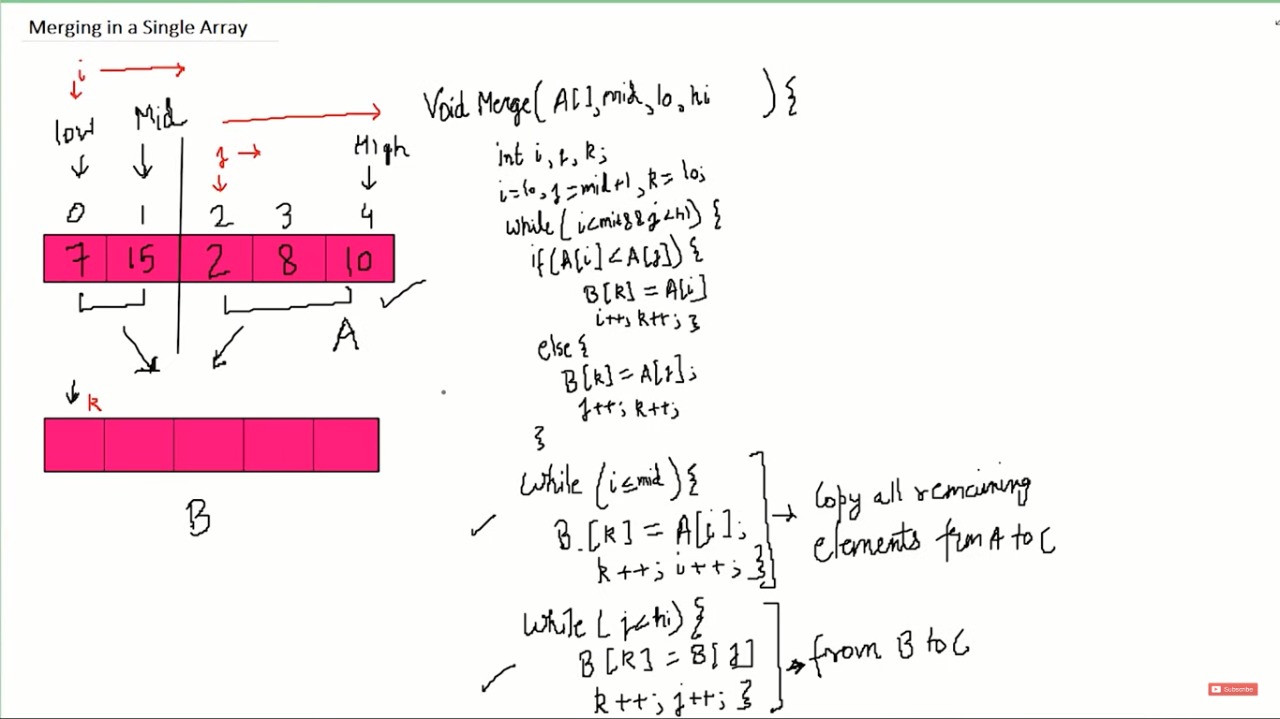 Merging in a Single Array
i
low
Mid
j
High
0 1 2 3 4
7 15 2 8 10
A
k
B
Void Merge( A[], mid, lo, hi ) {
int i, j, k;
i=lo, j=mid+1, k=lo;
while (i<mid && j<hi) {
if (A[i] < A[j]) {
B[k] = A[i]
i++, k++; }
else {
B[k] = A[j];
j++; k++;
}
while (i≤mid) {
B.[k] = A[i];
k++; i++; }
Copy all remaining
elements from A to C
while (j<hi) {
B[k] = B[j]
k++; j++; }
from B to C
Subscribe